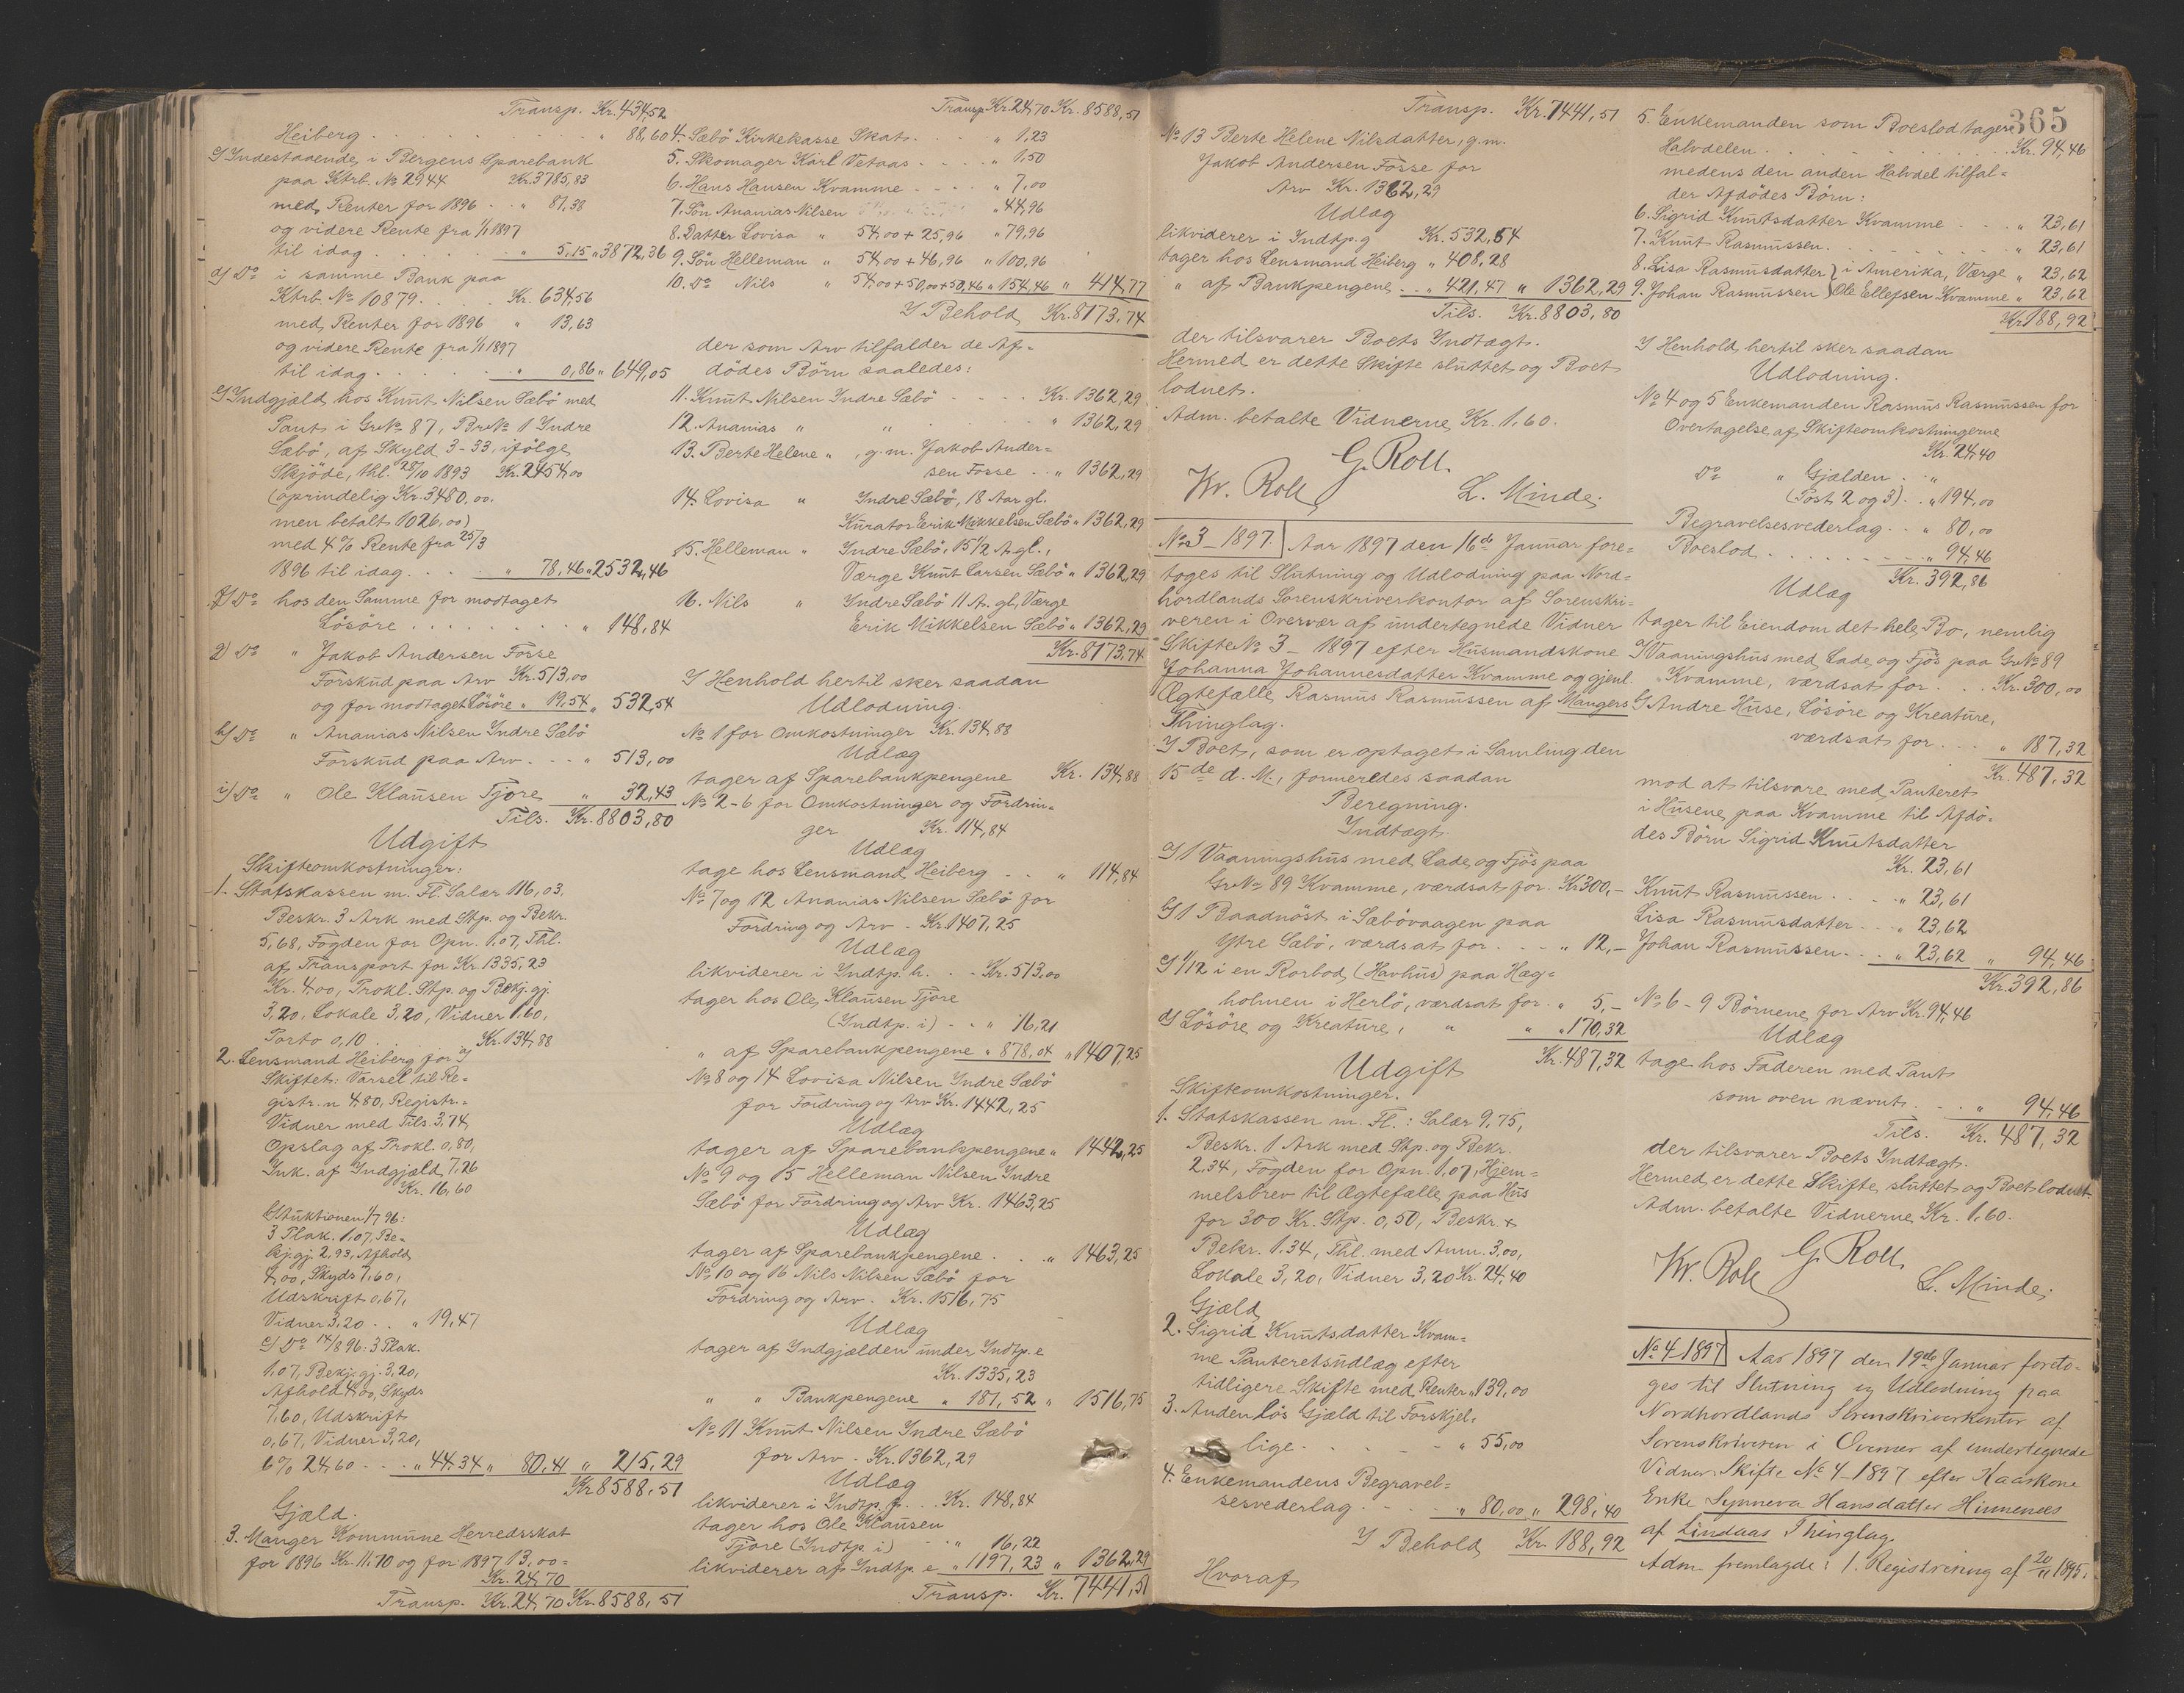 Transp. Kr. 434,52
Heiberg . . . . " 88,60
c) Indestaaende i Bergens Sparebank
paa Ktrb. No 2944 Kr. 3785,83
med Renter for 1896 . . " 81,38
og videre Rente fra 1/1 1897
til idag . . . . " 5,15 " 3872,36
d) Do i samme Bank paa
Ktrb. No 10879 . . . Kr. 634,56
med Renter for 1896 " 13,63
og videre Rente fra 1/1 1897
til idag . . . . " 0,86 " 649,05
e) Indgjæld hos Knut Nilsen Sæbö med
Pant i GrNo 87, BrNo 1 Indre
Sæbö, af Skyld 3-33, ifölge
Skjöde, thl. 28/10 1893 Kr. 2454,00
(oprindelig Kr. 3480,00.
men betalt 1026,00)
med 4% Rente fra 25/3
1896 til idag . . . " 78,46 " 2532,46
f) Do hos den Samme for modtaget
Lösöre . . . . " 148,84
g) Do " Jakob Andersen Fosse
Forskud paa Arv Kr. 513,00
og for modtaget Lösöre " 19,54 " 532,54
h) Do " Ananias Nilsen Indre Sæbö
Forskud paa Arv . . . " 513,00
i) Do " Ole Klausen Tjore " 32,43
Tils. Kr. 8803,80
Udgift
Skifteomkostninger:
1. Statskassen m. Fl. Salær 116,03.
Beskr. 3 Ark med Stp. og Bekr.
5,68, Fogden for Opn. 1,07, Thl.
af Transport for Kr. 1335,23
Kr. 4,00, Prokl. Stp. og Bekj. gj.
3,20, Lokale 3,20, Vidner 1,60,
Porto 0,10 . . . Kr. 134,88
2. Lensmand Heiberg for a)
Skiftet: Varsel til Re=
gistr.n 4,80, Registr.=
Vidner med Tils. 3,74,
Opslag af Prokl. 0,80,
Ink. af Indgjæld 7,26
Kr. 16,60
b) Auktionen 1/7 96:
3 Plak. 1,07, Be=
kj.gj. 2,93, Afhold
4,00, Skyds 7,60,
Udskrift 0,67,
Vidner 3,20 . . " 19,47
c) Do 14/8 96: 3 Plak.
1,07, Bekj.gj. 3,20,
Afhold 4,00, Skyds
7,60, Udskrift
0,67, Vidner 3,20,
6% 24,60 . . . " 44,34 " 80,41 " 215,29
Kr. 8588,51
Gjæld.
3. Manger Kommune Herredsskat
for 1896 Kr. 11,70 og for 1897 13,00 =
Kr. 24,70
Transp. Kr. 24,70 Kr. 8588,51
Transp. Kr. 24,70 Kr. 8588,51
4. Sæbö Kirkekasse Skat . . . " 1,23
5. Skomager Karl Vetaas . . . . " 1,50
6. Hans Hansen Kvamme . . . . " 7,00
7. Sön Ananias Nilsen " 44,96
8. Datter Lovisa " 54,00 + 25,96 " 79,96
9. Sön Helleman " 54,00 + 46,96 " 100,96
10. Do Nils " 54,00 + 50,00 + 50,46 " 154,46 " 414,77
I Behold Kr. 8173,74
der som Arv tilfalder de Af=
dödes Börn saaledes:
11. Knut Nilsen Indre Sæbö . . . . Kr. 1362,29
12. Ananias " " . . . . " 1362,29
13. Berte Helene " , g.m. Jakob Ander=
sen Fosse . . . " 1362,29
14. Lovisa " Indre Sæbö, 18 Aar gl.
Kurator Erik Mikkelsen Sæbö " 1362,29
15. Helleman " Indre Sæbö, 15 1/2 A. gl.,
Værge Knut Larsen Sæbö " 1362,29
16. Nils " Indre Sæbö 11 A. gl., Værge
Erik Mikkelsen Sæbö " 1362,29
Kr. 8173,74
I Henhold hertil sker saadan
Udlodning.
No 1 for Omkostninger Kr. 134,88
Udlæg
tager af Sparebankpengene Kr. 134,88
No 2-6 for Omkostninger og Fordrin=
ger Kr. 114,84
Udlæg
tage hos Lensmand Heiberg . . " 114,84
No 7 og 12 Ananias Nilsen Sæbö for
Fordring og Arv - Kr. 1407,25
Udlæg
likviderer i Indtp. h. . . Kr. 513,00
tager hos Ole Klausen Tjore
(Indtp. i) . . " 16,21
" af Sparebankpengene " 878,04 " 1407,25
No 8 og 14 Lovisa Nilsen Indre Sæbö
for Fordring og Arv Kr. 1442,25
Udlæg
tager af Sparebankpengene " 1442,25
No 9 og 15 Helleman Nilsen Indre
Sæbö for Fordring og Arv Kr. 1463,25
Udlæg
tager af Sparebankpengene . . . " 1463,25
No 10 og 16 Nils Nilsen Sæbö for
Fordring og Arv . Kr. 1516,75
Udlæg
tager af Indgjælden under Indtp. e
Kr. 1335,23
" " Bankpengene " 181,52 " 1516,75
No 11 Knut Nilsen Indre Sæbö
for Arv - Kr. 1362,29
Udlæg
likviderer i Indtp. f. . . Kr. 148,84
tager hos Ole Klausen
Tjore (Indtp. i) . . " 16,22
likviderer af Indtp. e " 1197,23 " 1362,29
Transp. Kr. 7441,51
Transp. Kr. 7441,51
No 13 Berte Helene Nilsdatter, g.m.
Jakob Andersen Fosse for
Arv Kr. 1362,29
Udlæg
likviderer i Indtp. g Kr. 532,54
tager hos Lensmand Heiberg " 408,28
" af Bankpengene . . " 421,47 " 1362,29
Tils. Kr. 8803,80
der tilsvarer Boets Indtægt.
Hermed er dette Skifte sluttet og Boet
lodnet.
Adm. betalte Vidnerne Kr. 1,60.
G. Roll.
Kr. Roll L. Minde.
No 3 - 1897 Aar 1897 den 16de Januar fore=
toges til Slutning og Udlodning paa Nord=
hordlands Sorenskriverkontor af Sorenskri=
veren i Overvær af undertegnede Vidner
Skifte No 3 - 1897 efter Husmandskone
Johanna Johannesdatter Kvamme og gjenl.
Ægtefælle Rasmus Rasmussen af Mangers
Thinglag.
I Boet, som er optaget i Samling den
15de d. M., formeredes saadan
Beregning.
Indtægt.
a) 1 Vaaningshus med Lade og Fjös paa
GrNo 89 Kvamme, værdsat for. Kr 300,-
b) 1 Baadnöst i Sæbövaagen paa
Ytre Sæbö, værdsat for . . . " 12,-
c) 1/12 i en Rorbod (Havhus) paa Hæg=
holmen i Herlö, værdsat for . " 5,-
d) Lösöre og Kreature, " " " 170,32
Kr. 487,32
Udgift
Skifteomkostninger.
1. Statskassen m. Fl.: Salær 9,75,
Beskr. 1 Ark med Stp. og Bekr.
2,34, Fogden for Opn. 1,07, Hjem=
melsbrev til Ægtefælle paa Hus
for 300 Kr. Stp. 0,50, Beskr. +
Bekr. 1,34, Thl. med Anm. 3,00,
Lokale 3,20, Vidner 3,20 Kr. 24,40
Gjæld
2. Sigrid Knutsdatter Kvam=
me Panteretsudlæg efter
tidligere Skifte med Renter " 139,00
3. Anden Lös Gjæld til Forskjel=
lige . . . . . " 55,00
4. Enkemandens Begravel=
sesvederlag . . . . " 80,00 " 298,40
I Behold Kr. 188,92
Hvoraf
365
5. Enkemanden som Boeslod tager
Halvdelen . . . . . Kr. 94,46
medens den anden Halvdel tilfal=
der Afdödes Börn:
6. Sigrid Knutsdatter Kvamme . . . " 23,61
7. Knut Rasmussen . . . . . " 23,61
8. Lisa Rasmusdatter } i Amerika, Værge " 23,62
9. Johan Rasmussen } Ole Ellefsen Kvamme " 23,62
Kr. 188,92
I Henhold hertil sker saadan
Udlodning.
No 4 og 5 Enkemanden Rasmus Rasmussen for
Overtagelse af Skifteomkostningerne
Kr. 24,40
Do " Gjælden . "
(Post 2 og 3) . . " 194,00
Begravelsesvederlag . . " 80,00
Boeslod . . . . . " 94,46
Kr. 392,86
Udlæg
tager til Eiendom det hele Bo, nemlig
a) Vaaningshus med Lade og Fjös paa GrNo 89
Kvamme, værdsat for . . . Kr. 300,00
b) Andre Huse, Lösöre og Kreature,
værdsat for . . . " 187,32
Kr. 487,32
mod at tilsvare med Panteret
i Husene paa Kvamme til Afdö=
des Börn Sigrid Knutsdatter
Kr. 23,61
Knut Rasmussen . . . . " 23,61
Lisa Rasmusdatter . . . " 23,62
Johan Rasmussen . . . " 23,62 " 94,46
Kr. 392,86
No 6 - 9 Börnene for Arv Kr. 94,46
Udlæg
tage hos Faderen med Pant
som oven nævnt . . . " 94,46
Tils. Kr. 487,32
der tilsvarer Boets Indtægt.
Hermed er dette Skifte sluttet og Boet lodnet
Adm. betalte Vidnerne Kr. 1,60.
G. Roll.
Kr. Roll L. Minde.
No 4-1897 Aar 1897 den 19de Januar foreto=
ges til Slutning og Udlodning paa
Nordhordlands Sorenskriverkontor af
Sorenskriveren i Overvær af undertegnede
Vidner Skifte No 4 - 1897 efter Kaarkone
Enke Synneva Hansdatter Hinnenæs
af Lindaas Thinglag.
Adm. fremlagde: 1. Registrering af 20/11 1895.